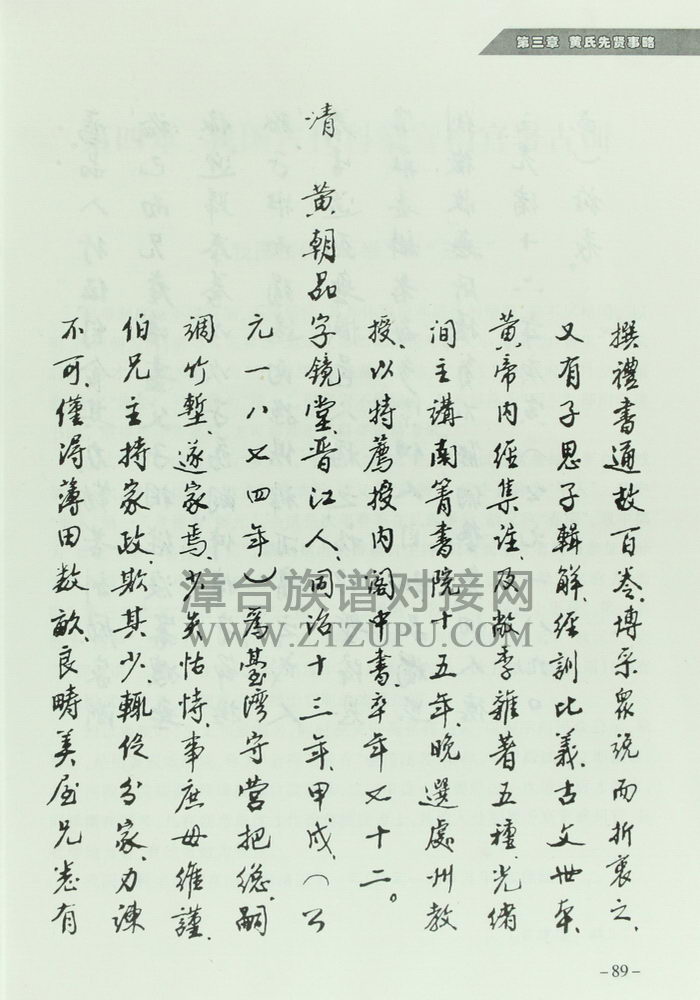 第三章 黄氏先贤事略
撰禮書通故百卷、博采眾說而折衷之、
又有子思子輯解、經訓比義、古文世本、
黃帝內經集注及敞季雜著五種、光緒
間主講南菁書院十五年、晚選處州教
授、以特薦授內閣中書、卒年七十二。
清 黃朝品字鏡堂、晉江人、同治十三年、甲戌、(公
元一八七四年)為臺灣守營把總、嗣
調竹塹、遂家焉、少失怙恃、事庶母維謹、
伯兄主持家政、欺其少、輒促分家、力諫
不可、僅得薄田數畝、良疇美屋兄悉有
漳台族谱对接网
WWW.ZTZUPU.COM
-89-